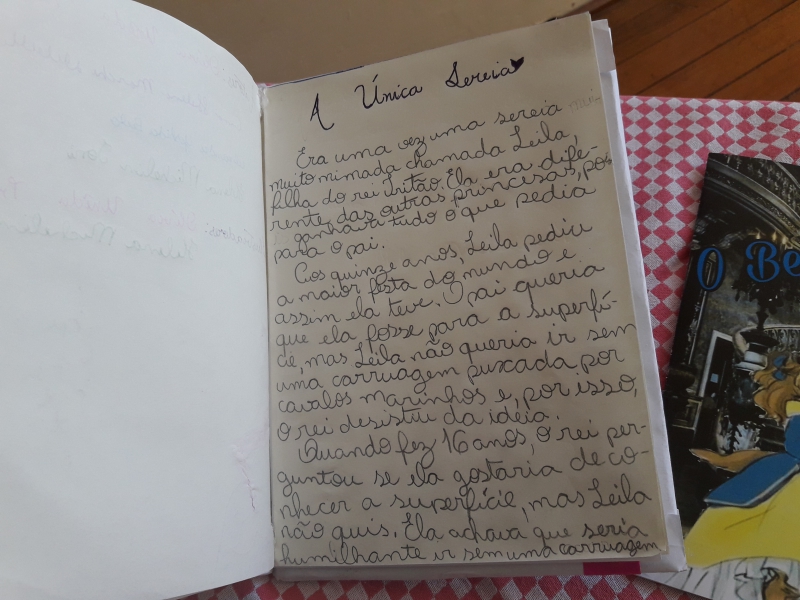 A Única Sereia
Era uma vez uma sereia
muito mimada chamada Leila,
filha do rei Tritão. Ela era dife-
rente das outras princesas, pois
ganhava tudo o que pedia
para o pai.
Aos quinze anos, Leila pediu
a maior festa do mundo e
assim ela teve. O pai queria
que ela fosse para a superfí-
cie, mas Leila não queria ir sem
uma carruagem puxada por
cavalos marinhos e, por isso,
o rei desistiu da idéia.
Quando fez 16 anos, o rei per-
guntou se ela gostaria de co-
nhecer a superfície, mas Leila
não quis. Ela achava que seria
humilhante ir sem uma carruagem
O Be